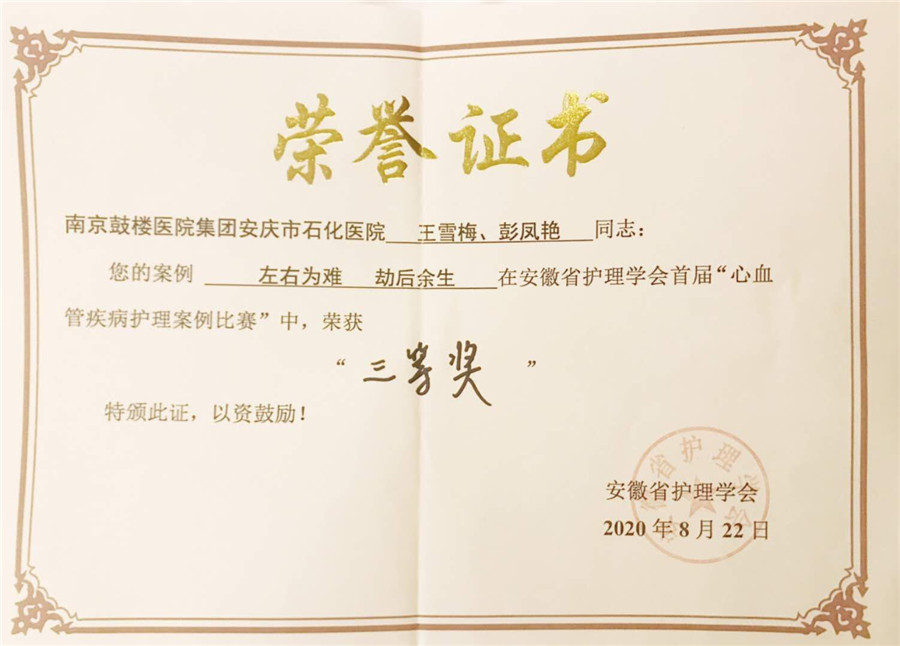 荣誉证书
南京鼓楼医院集团安庆市石化医院 王雪梅、彭凤艳 同志：
您的案例 左右为难 劫后余生 在安徽省护理学会首届“心血
管疾病护理案例比赛”中，荣获
“三等奖”
特颁此证，以资鼓励！
安徽省护理学会
安徽省护理学会
2020 年 8 月 22 日